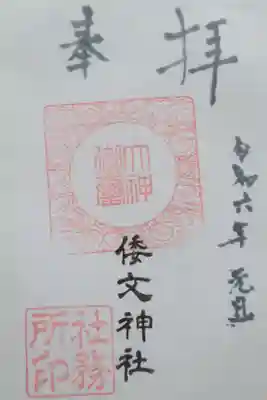 奉拝
令和六年 元旦
倭文神社
社務所印